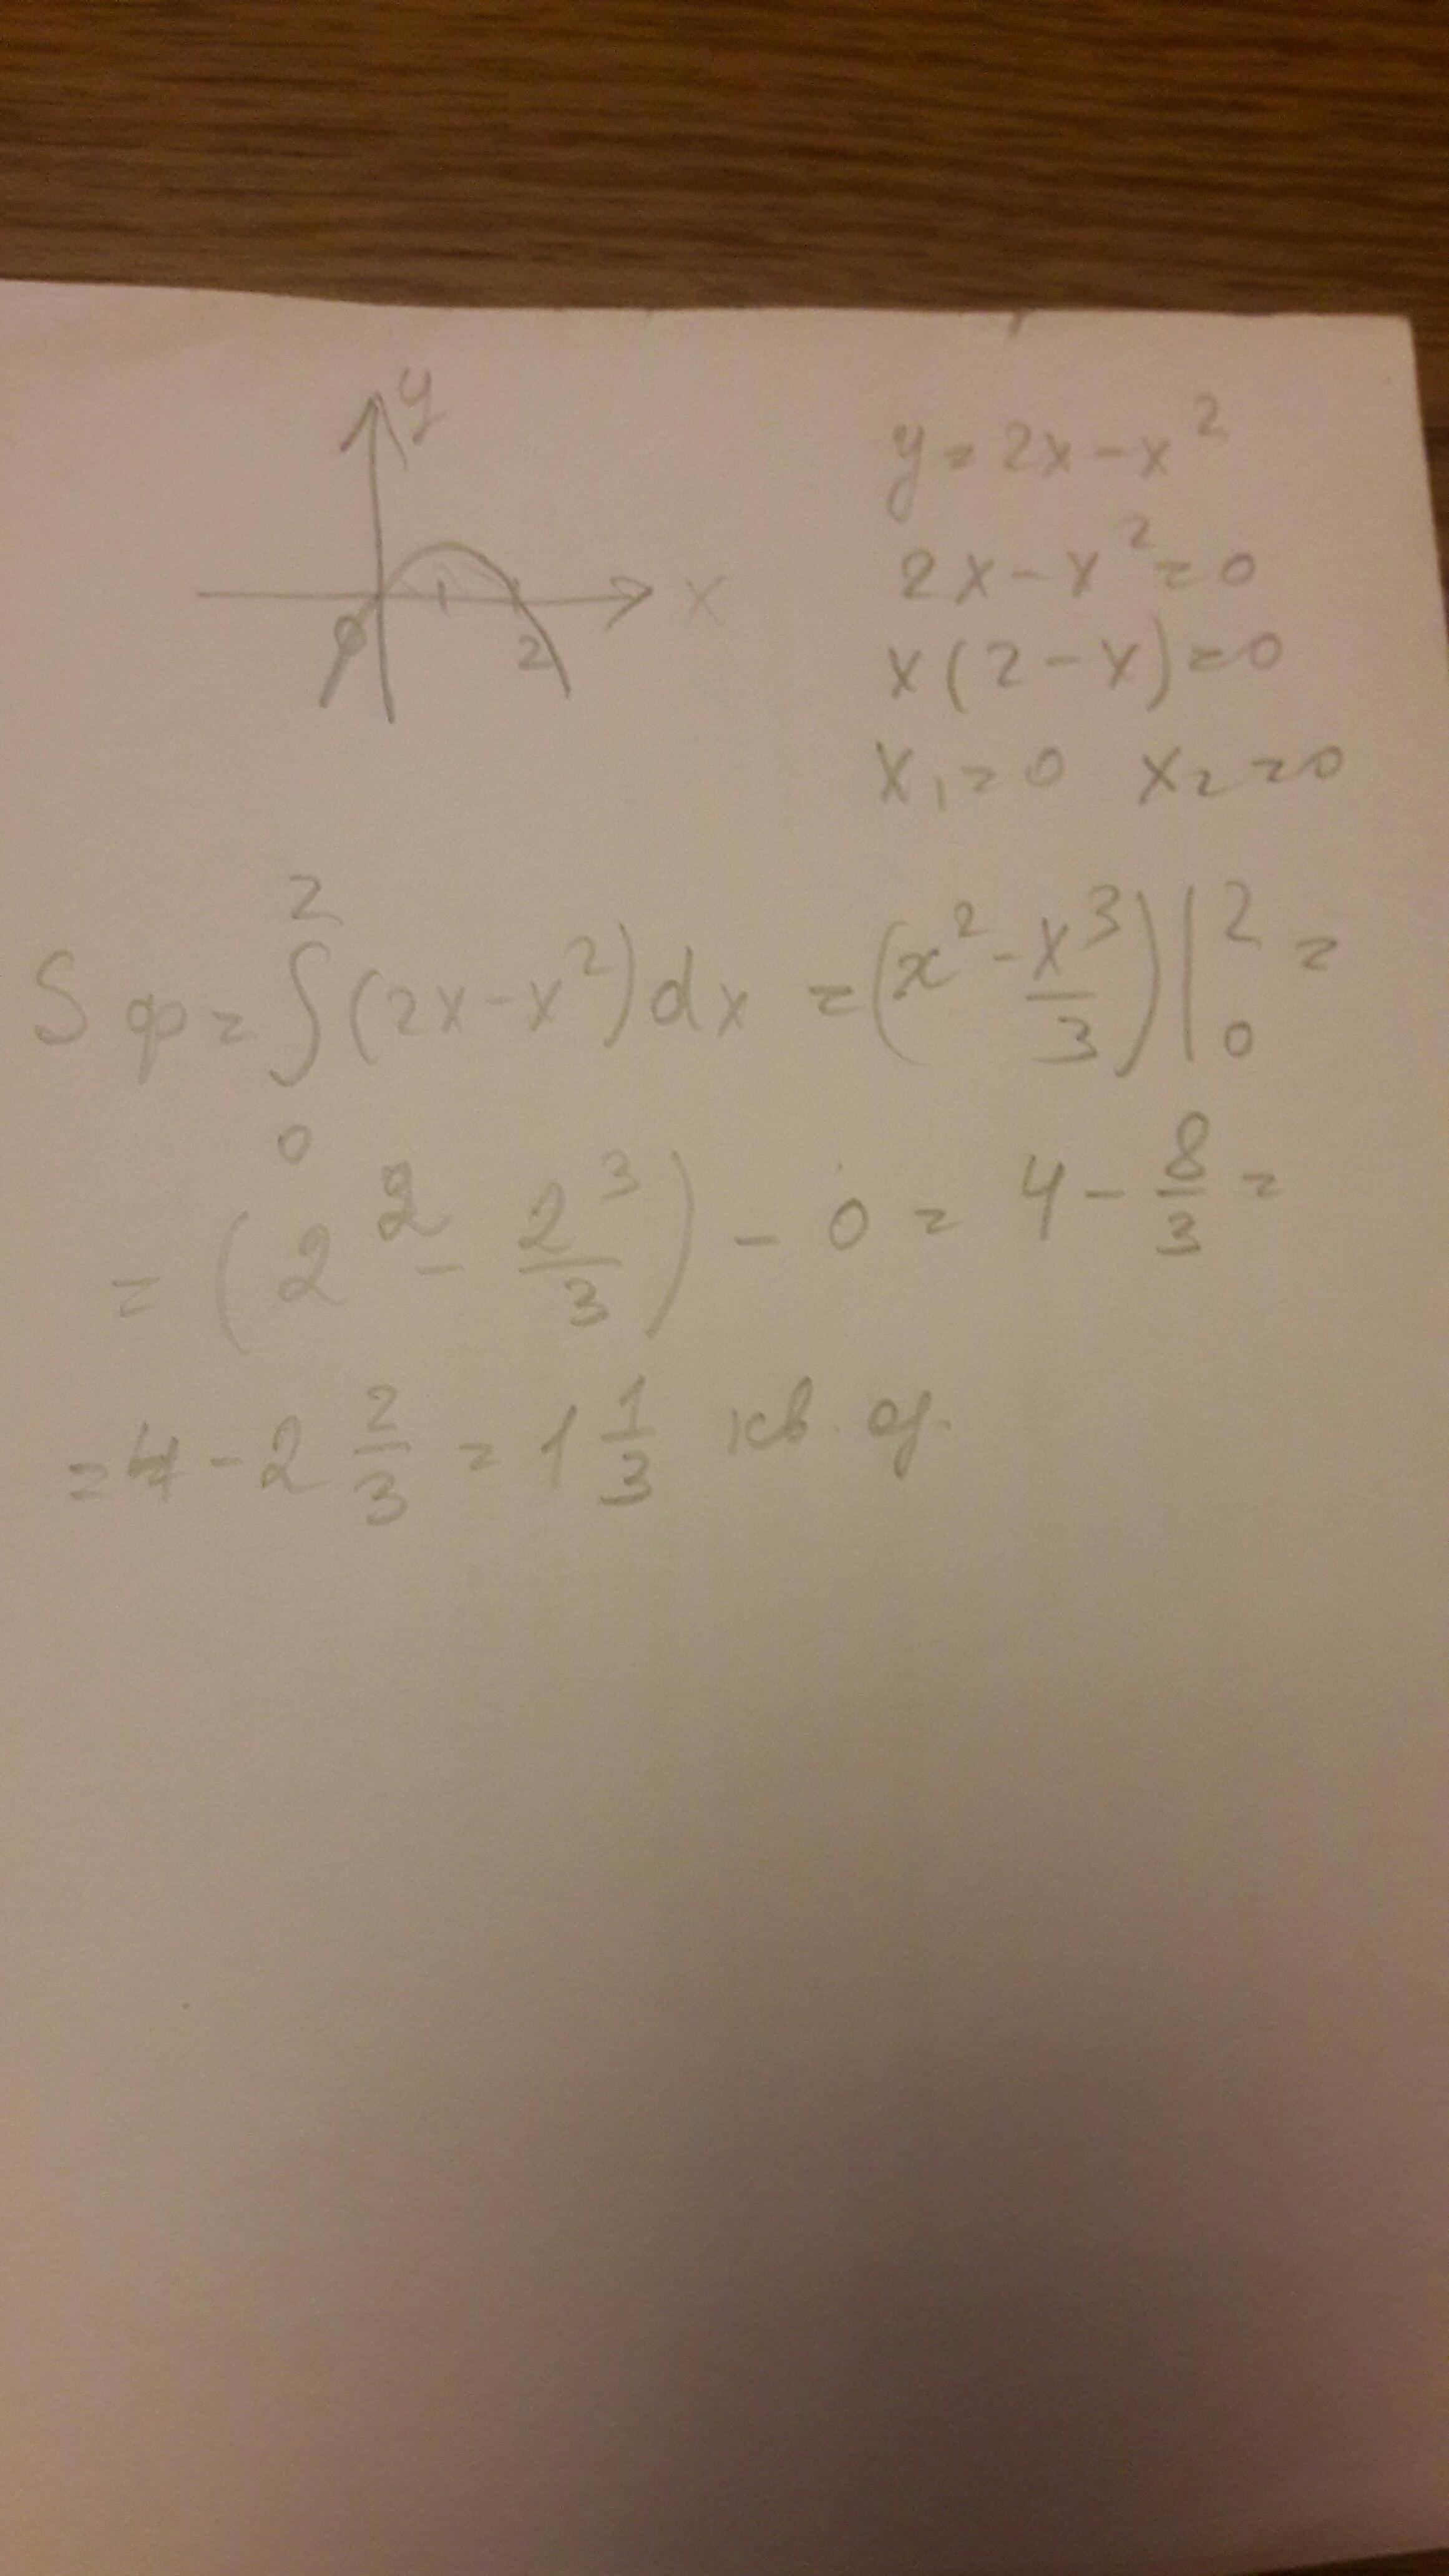 y
x
0 1 2
y = 2x - x²
2x - x² = 0
x(2 - x) = 0
x₁ = 0 x₂ = 0
Sф = ∫₀² (2x - x²)dx = (x² - x³/3)|₀² =
= (2² - 2³/3) - 0 = 4 - 8/3 =
= 4 - 2 2/3 = 1 1/3 кв. ед.